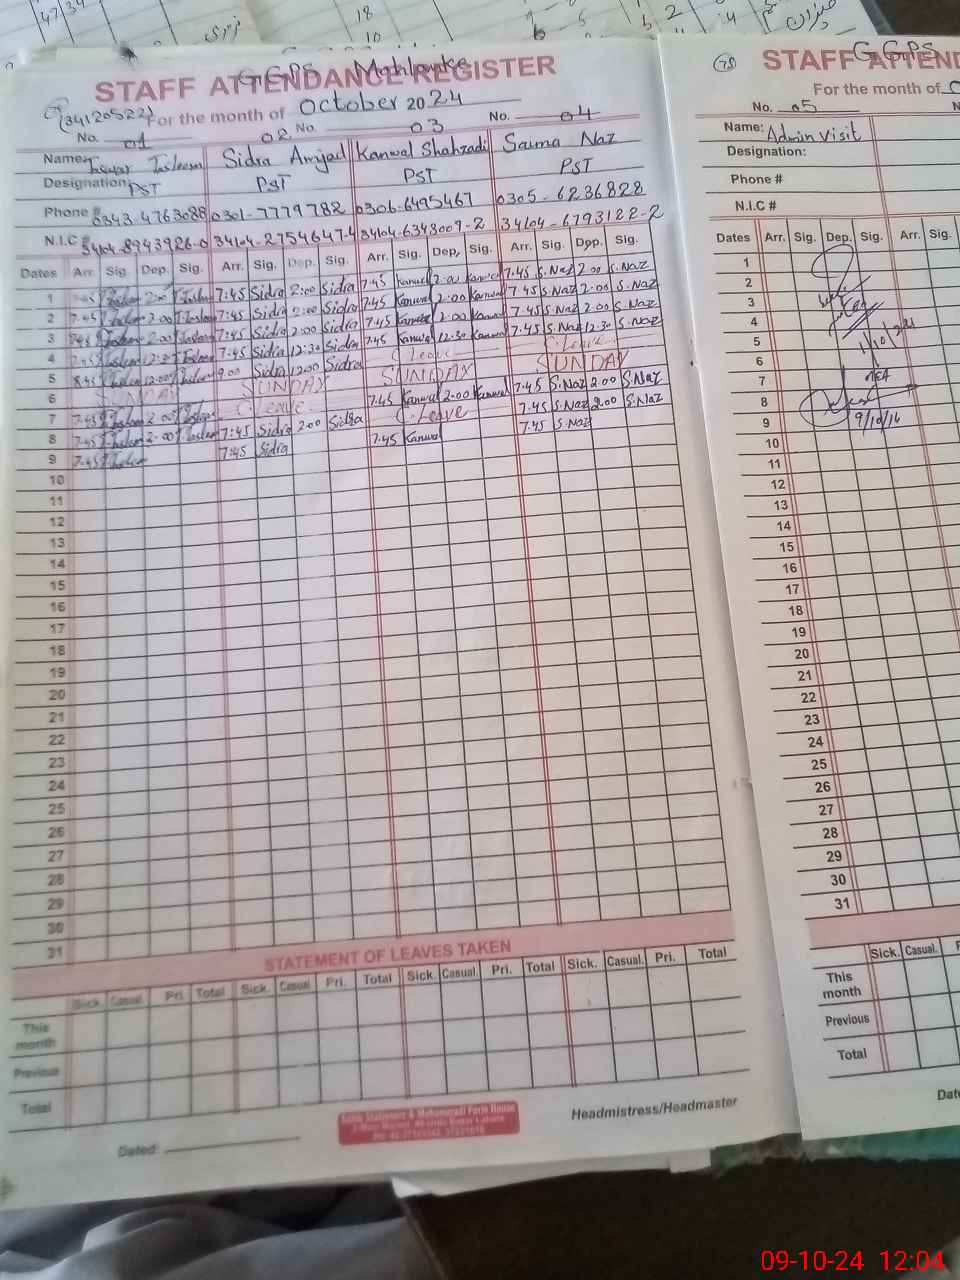 STAFF ATTENDANCE REGISTER
GGPS Mohlowke
(34120522)
For the month of October 2024
No. 01 02 No. 03 No. 04
Name: Tasleem Sidra Amjad Kanwal Shahzadi Saima Naz
Designation: PST PST PST PST
Phone # 0343-4763088 0301-7779782 0306-6495467 0305-6236828
N.I.C 34104-8943926-0 34104-2754647-4 34104-6343009-2 34104-6793122-2
Dates Arr. Sig. Dep. Sig. Arr. Sig. Dep. Sig. Arr. Sig. Dep. Sig. Arr. Sig. Dpp. Sig.
1 7:45 Tasleem 2:00 T.Tasleem 7:45 Sidra 2:00 Sidra 7:45 Kanwal 2:00 Kanwal 7:45 S.Naz 2:00 S.Naz
2 7:45 Tasleem 2:00 T.Tasleem 7:45 Sidra 2:00 Sidra 7:45 Kanwal 2:00 Kanwal 7:45 S.Naz 2:00 S.Naz
3 7:45 Tasleem 2:00 Tasleem 7:45 Sidra 2:00 Sidra 7:45 Kanwal 2:00 Kanwal 7:45 S.Naz 2:00 S.Naz
4 7:45 Tasleem 12:30 Tasleem 7:45 Sidra 12:30 Sidra 7:45 Kanwal 12:30 Kanwal 7:45 S.Naz 12:30 S.Naz
5 8:45 Tasleem 12:00 Tasleem 9:00 Sidra 12:00 Sidra C Leave C. Leave
6 SUNDAY SUNDAY SUNDAY SUNDAY
7 7:45 T.Tasleem 2:00 T.Tasleem C. Leave 7:45 Kanwal 2:00 Kanwal 7:45 S.Naz 2:00 S.Naz
8 7:45 T.Tasleem 2:00 T.Tasleem 7:45 Sidra 2:00 Sidra C. Leave 7:45 S.Naz 2:00 S.Naz
9 7:45 T.Tasleem 7:45 Sidra 7:45 Kanwal 7:45 S.Naz
10
11
12
13
14
15
16
17
18
19
20
21
22
23
24
25
26
27
28
29
30
31
STATEMENT OF LEAVES TAKEN
Sick. Casual. Pri. Total Sick. Casual. Pri. Total Sick. Casual. Pri. Total Sick. Casual. Pri. Total
This month
Previous
Total
Dated:
Headmistress/Headmaster
GGPS
STAFF ATTEND
For the month of
No. 05
Name: Admin Visit
Designation:
Phone #
N.I.C #
Dates Arr. Sig. Dep. Sig. Arr. Sig.
1
2
3
4
5
6
7
8
9
10
11
12
13
14
15
16
17
18
19
20
21
22
23
24
25
26
27
28
29
30
31
9/10/16
Sick. Casual.
This month
Previous
Total
Date
09-10-24 12:04